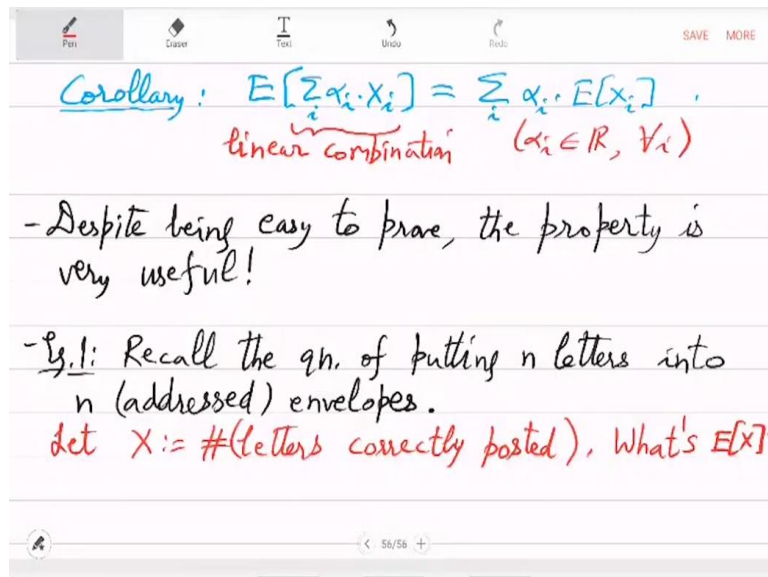 Pen Eraser Text Undo Redo SAVE MORE
Corollary: E[∑_i α_i·X_i] = ∑_i α_i·E[X_i].
linear combination (α_i ∈ ℝ, ∀i)
- Despite being easy to prove, the property is
very useful!
- Eg.1: Recall the qn. of putting n letters into
n (addressed) envelopes.
Let X := #(letters correctly posted). What's E[X]
56/56